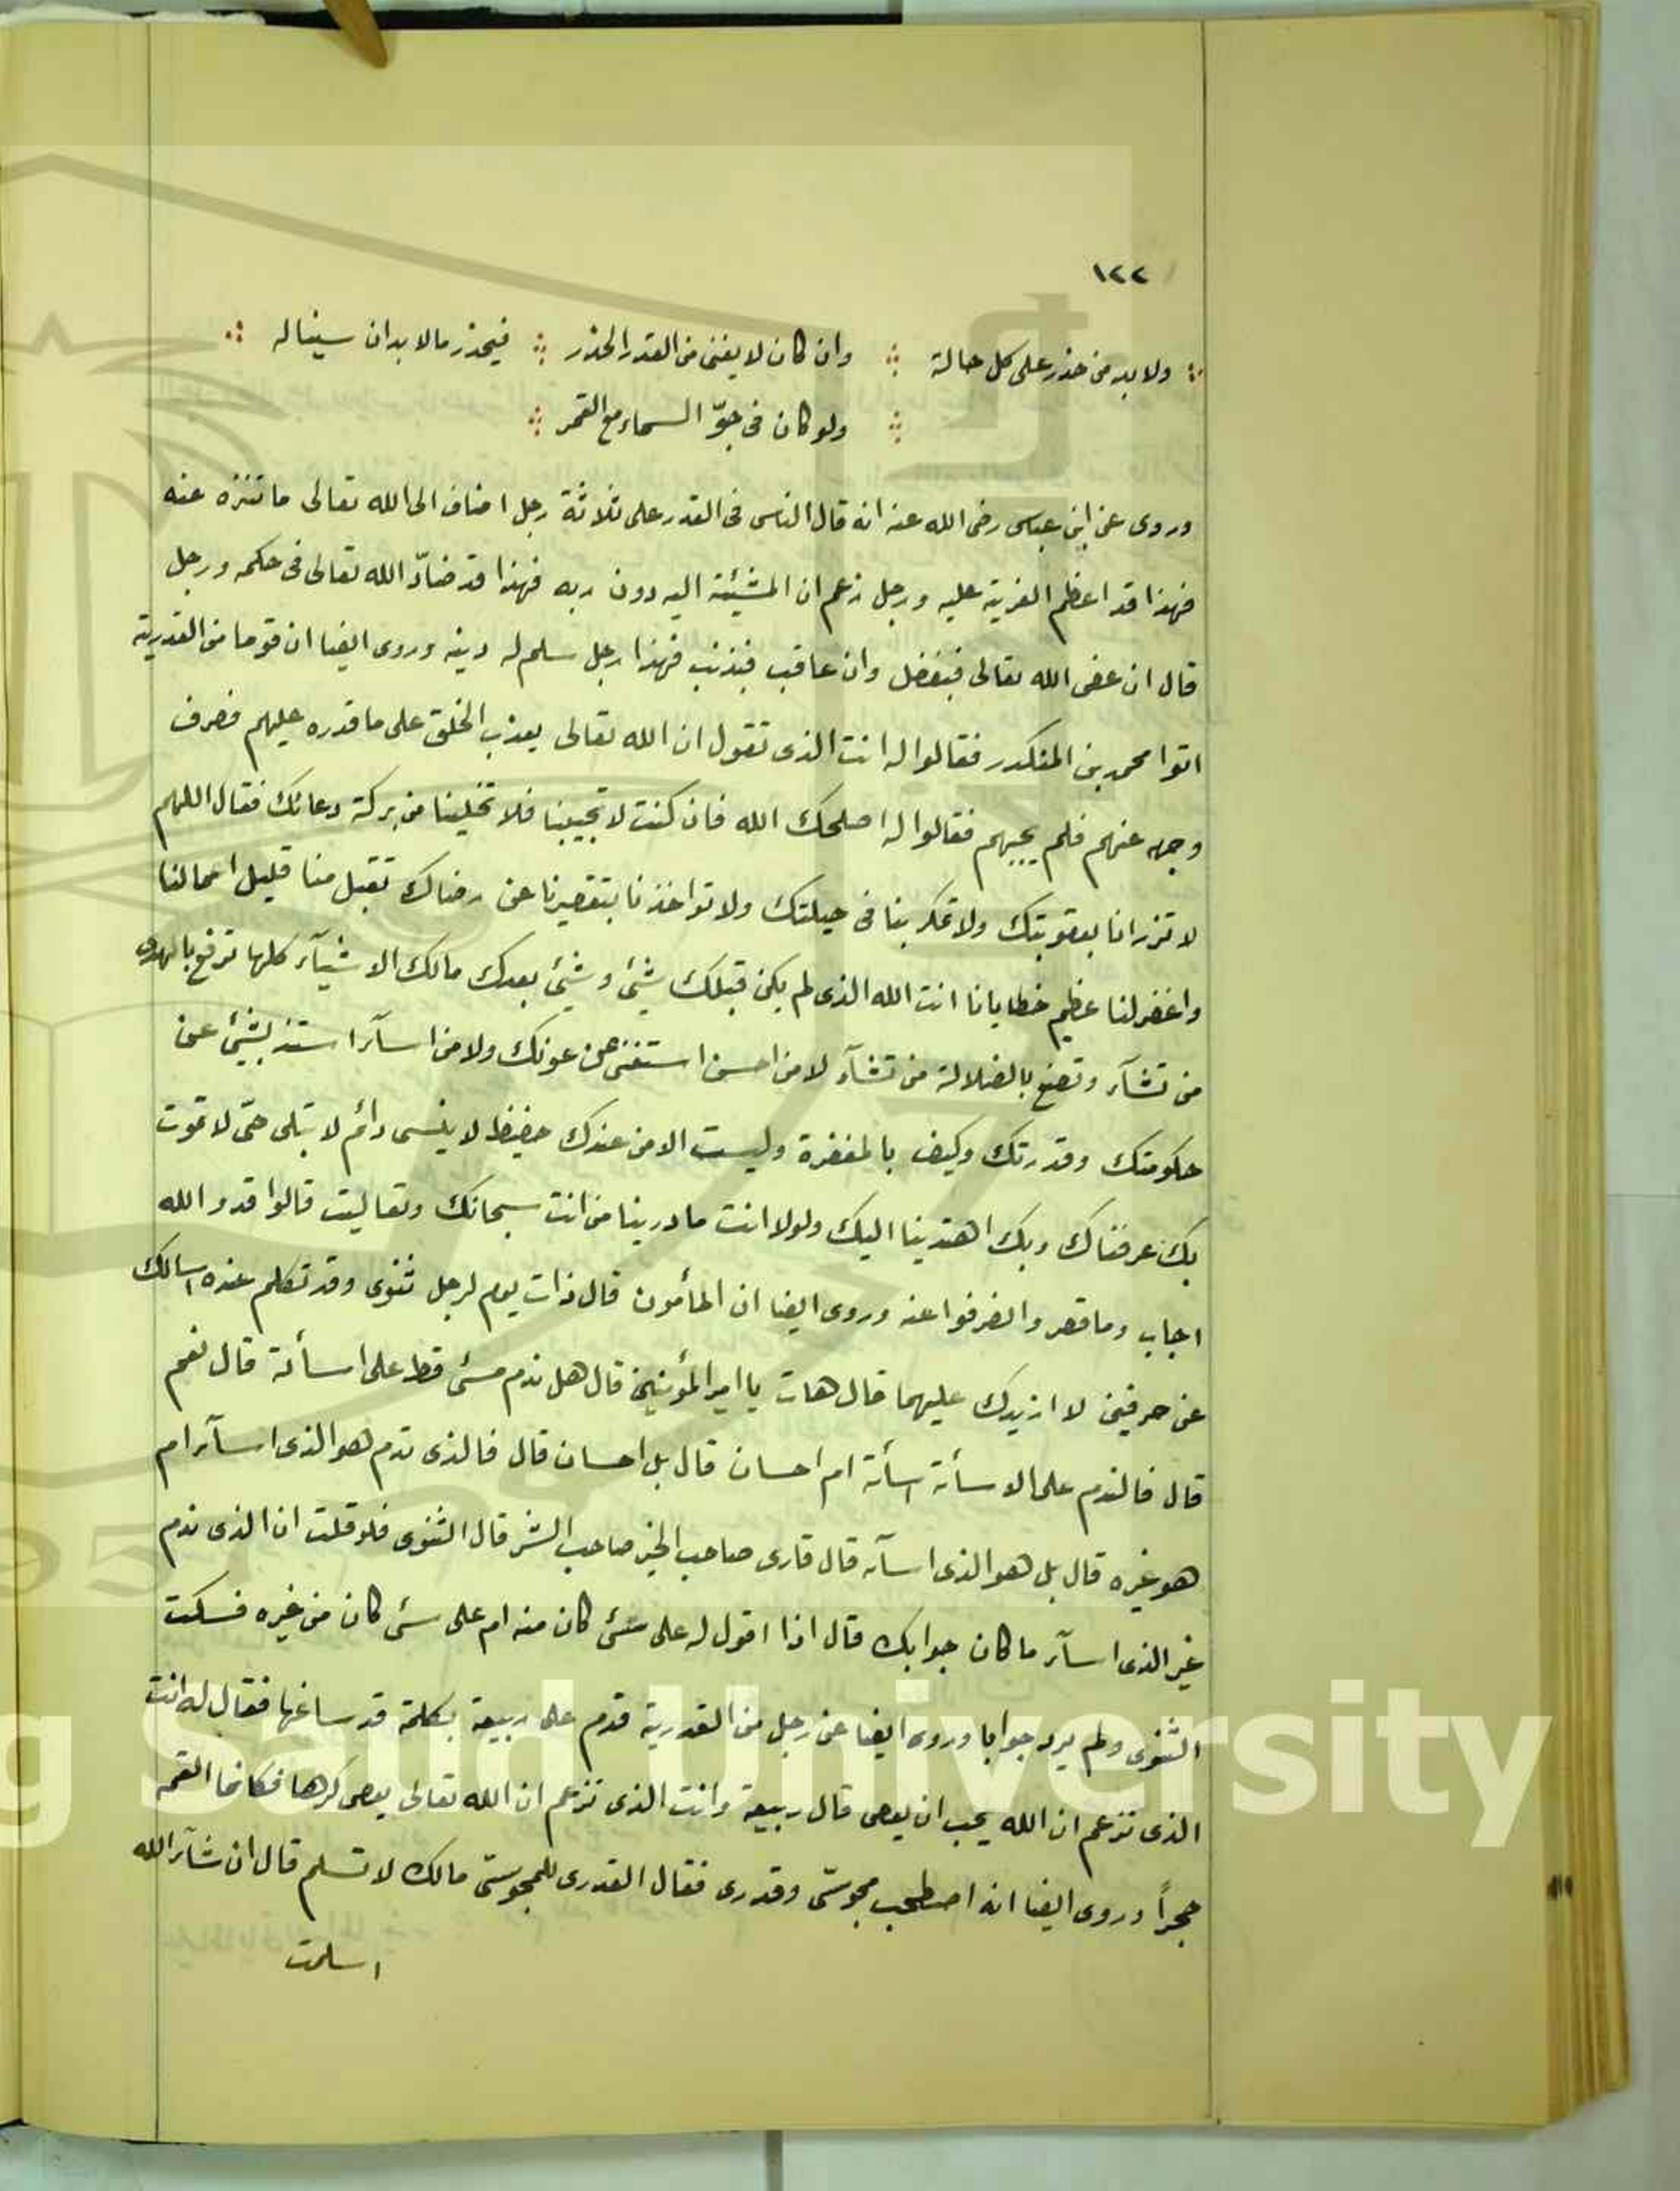 ١٢٢
ولا بد من حذر على كل حالة ∴ وان كان لا يغنى من القدر الحذر ∴ فيحذر مالا بد ان سيناله
ولو كان فى جوّ السماء مع القمر
وروى عن ابن عباس رضى الله عنه انه قال الناس فى القدر على ثلاثة رجل اضاف الى الله تعالى ما تنزه عنه
فهذا قد اعظم الفرية عليه ورجل زعم ان المشيئة اليه دون ربه فهذا قد ضادّ الله تعالى فى حكمه ورجل
قال ان عفى الله تعالى فبفضل وان عاقب فبذنب فهذا رجل سلم له دينه وروى ايضا ان قوما من القدرية
اتوا محمد بن المنكدر فقالوا له انت الذى تقول ان الله تعالى يعذب الخلق على ما قدره عليهم فصرف
وجهه عنهم فلم يجبهم فقالوا له اصلحك الله فان كنت لا تجيبنا فلا تخلينا من بركة دعائك فقال اللهم
لا تزرانا بعقوبتك ولا تمكر بنا فى حيلتك ولا تواخذنا بتقصيرنا عن رضاك تقبل منا قليل اعمالنا
واغفر لنا عظيم خطايانا انت الله الذى لم يكن قبلك شيئ وشيئ بعدك مالك الاشيآء كلها ترفع بالهدى
من تشآء وتضع بالضلالة من تشآء لا من احسن استغنى عن عونك ولا من اسآء استبد بشيئ عن
حكومتك وقدرتك وكيف بالمغفرة وليست الا من عندك حفيظ لا ينسى دائم لا تبلى حىّ لا تموت
بك عرفناك وبك اهتدينا اليك ولولا انت ما درينا من انت سبحانك وتعاليت قالوا قد والله
اجاب وما قصر وانصرفوا عنه وروى ايضا ان المأمون قال ذات يوم لرجل ثنوى وقد تكلم عنده اسالك
عن حرفين لا ازيدك عليهما قال هات يا امير المؤمنين قال هل ندم مسئ قط على اسأئة قال نعم
قال فالندم على الاسأئة اسأئة ام احسان قال بل احسان قال فالذى ندم هو الذى اسآء ام
هو غيره قال بل هو الذى اسآء قال فارى صاحب الخير صاحب الشر قال الثنوى فلو قلت ان الذى ندم
غير الذى اسآء ما كان جوابك قال اذا اقول له على شئ كان منه ام على شئ كان من غيره فسكت
الثنوى ولم يرد جوابا وروى ايضا عن رجل من القدرية قدم على ربيعة بكلمة قد ساغها فقال له انت
الذى تزعم ان الله يحب ان يعصى قال ربيعة وانت الذى تزعم ان الله تعالى يعصى كرها فكانما القمه
حجراً وروى ايضا انه اصطحب مجوسىّ وقدرى فقال القدرى للمجوسىّ مالك لا تسلم قال ان شآء الله
اسلمت
g Saud University